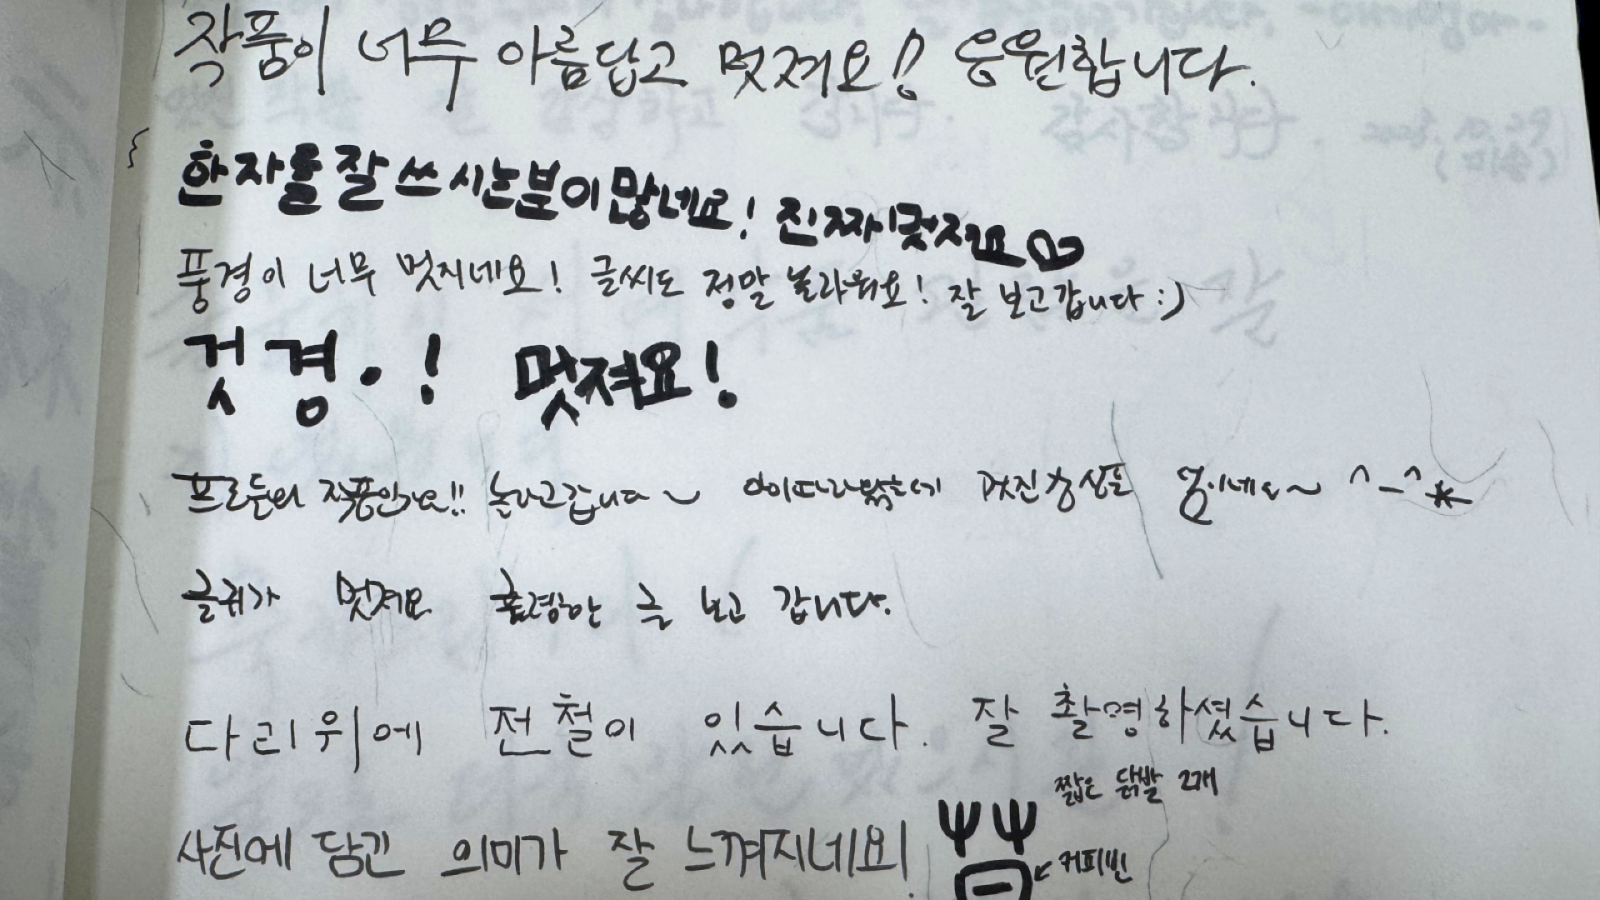 작품이 너무 아름답고 멋져요!! 응원합니다.
한자를 잘 쓰시는분이 많네요! 진짜 멋져요
풍경이 너무 멋지네요! 글씨도 정말 놀라워요! 잘 보고갑니다 :)
멋져요!
프로들의 작품인가요!! 놀라고갑니다~ ^-^*
글귀가 멋져요 훌륭한 글 보고 갑니다.
다리위에 전철이 있습니다. 잘 촬영하셨습니다.
짧은 닭발 2개
사진에 담긴 의미가 잘 느껴지네요!
커피빈